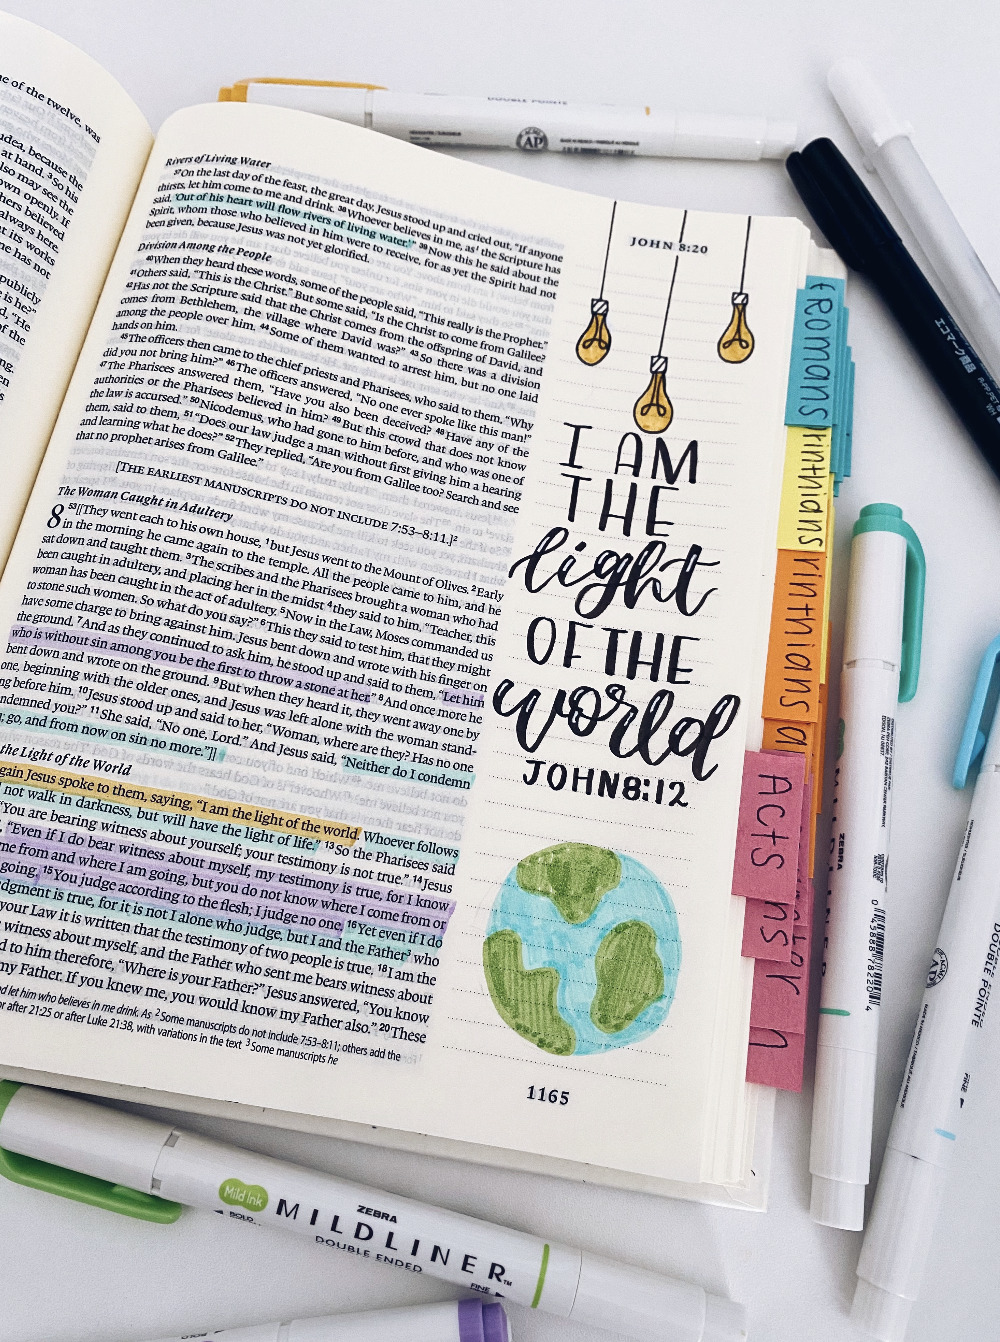 ne of the twelve, was
udea, because the
at hand. ³So his
lso may see the
own openly. If
hers believed
always here
t its works
ne has not
publicly
is he?"
d. "He
of the
ng.
Rivers of Living Water
³⁷On the last day of the feast, the great day, Jesus stood up and cried out, "If anyone
thirsts, let him come to me and drink. ³⁸Whoever believes in me, as¹ the Scripture has
said, 'Out of his heart will flow rivers of living water.'" ³⁹Now this he said about the
Spirit, whom those who believed in him were to receive, for as yet the Spirit had not
been given, because Jesus was not yet glorified.
Division Among the People
⁴⁰When they heard these words, some of the people said, "This really is the Prophet."
⁴¹Others said, "This is the Christ." But some said, "Is the Christ to come from Galilee?
⁴²Has not the Scripture said that the Christ comes from the offspring of David, and
comes from Bethlehem, the village where David was?" ⁴³So there was a division
among the people over him. ⁴⁴Some of them wanted to arrest him, but no one laid
hands on him.
⁴⁵The officers then came to the chief priests and Pharisees, who said to them, "Why
did you not bring him?" ⁴⁶The officers answered, "No one ever spoke like this man!"
⁴⁷The Pharisees answered them, "Have you also been deceived? ⁴⁸Have any of the
authorities or the Pharisees believed in him? ⁴⁹But this crowd that does not know
the law is accursed." ⁵⁰Nicodemus, who had gone to him before, and who was one of
them, said to them, ⁵¹"Does our law judge a man without first giving him a hearing
and learning what he does?" ⁵²They replied, "Are you from Galilee too? Search and see
that no prophet arises from Galilee."
[THE EARLIEST MANUSCRIPTS DO NOT INCLUDE 7:53–8:11.]²
The Woman Caught in Adultery
8 ⁵³[[They went each to his own house, ¹but Jesus went to the Mount of Olives. ²Early
in the morning he came again to the temple. All the people came to him, and he
sat down and taught them. ³The scribes and the Pharisees brought a woman who had
been caught in adultery, and placing her in the midst ⁴they said to him, "Teacher, this
woman has been caught in the act of adultery. ⁵Now in the Law, Moses commanded us
to stone such women. So what do you say?" ⁶This they said to test him, that they might
have some charge to bring against him. Jesus bent down and wrote with his finger on
the ground. ⁷And as they continued to ask him, he stood up and said to them, "Let him
who is without sin among you be the first to throw a stone at her." ⁸And once more he
bent down and wrote on the ground. ⁹But when they heard it, they went away one by
one, beginning with the older ones, and Jesus was left alone with the woman stand-
ng before him. ¹⁰Jesus stood up and said to her, "Woman, where are they? Has no one
ndemned you?" ¹¹She said, "No one, Lord." And Jesus said, "Neither do I condemn
; go, and from now on sin no more."]]
the Light of the World
gain Jesus spoke to them, saying, "I am the light of the world. Whoever follows
not walk in darkness, but will have the light of life." ¹³So the Pharisees said
"You are bearing witness about yourself; your testimony is not true." ¹⁴Jesus
"Even if I do bear witness about myself, my testimony is true, for I know
me from and where I am going, but you do not know where I come from or
going. ¹⁵You judge according to the flesh; I judge no one. ¹⁶Yet even if I do
dgment is true, for it is not I alone who judge, but I and the Father³ who
your Law it is written that the testimony of two people is true. ¹⁸I am the
witness about myself, and the Father who sent me bears witness about
d to him therefore, "Where is your Father?" Jesus answered, "You know
my Father. If you knew me, you would know my Father also." ²⁰These
d let him who believes in me drink. As ²Some manuscripts do not include 7:53–8:11; others add the
or after 21:25 or after Luke 21:38, with variations in the text ³Some manuscripts he
JOHN 8:20
I AM
THE
light
OF THE
world
JOHN 8:12
1165
Romans
rinthians
rinthians
Acts
DOUBLE POINTE
AP
ZEBRA
0 45888 78204
AP
DOUBLE POINTE
FINE
Mild Ink
BOLD
ZEBRA
MILDLINER™
DOUBLE ENDED
FINE